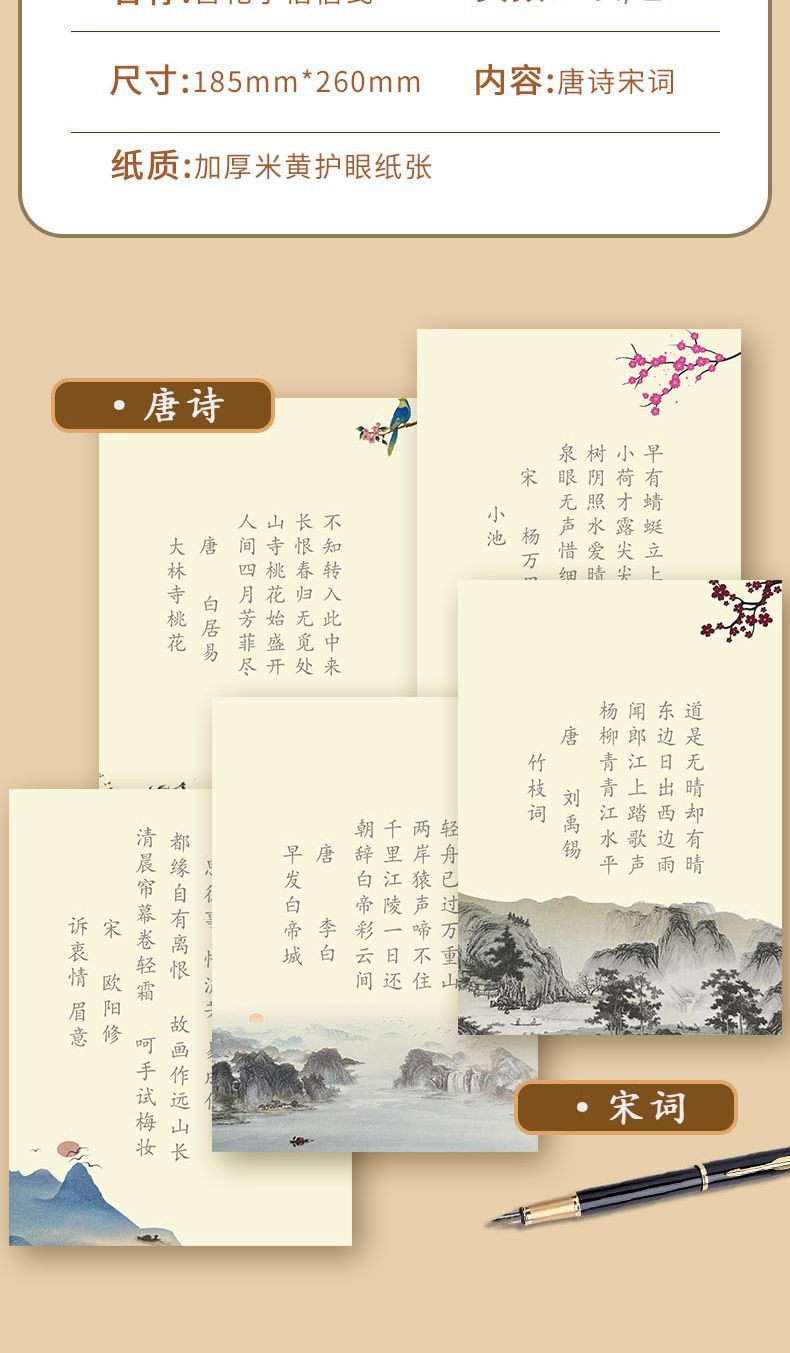 尺寸:185mm*260mm
内容:唐诗宋词
纸质:加厚米黄护眼纸张
·唐诗
大林寺桃花
唐 白居易
人间四月芳菲尽
山寺桃花始盛开
长恨春归无觅处
不知转入此中来
小池
宋 杨万
泉眼无声惜细
树阴照水爱晴
小荷才露尖尖
早有蜻蜓立上
竹枝词
唐 刘禹锡
杨柳青青江水平
闻郎江上踏歌声
东边日出西边雨
道是无晴却有晴
早发白帝城
唐 李白
朝辞白帝彩云间
千里江陵一日还
两岸猿声啼不住
轻舟已过万重山
诉衷情 眉意
宋 欧阳修
清晨帘幕卷轻霜 呵手试梅妆
都缘自有离恨 故画作远山长
·宋词